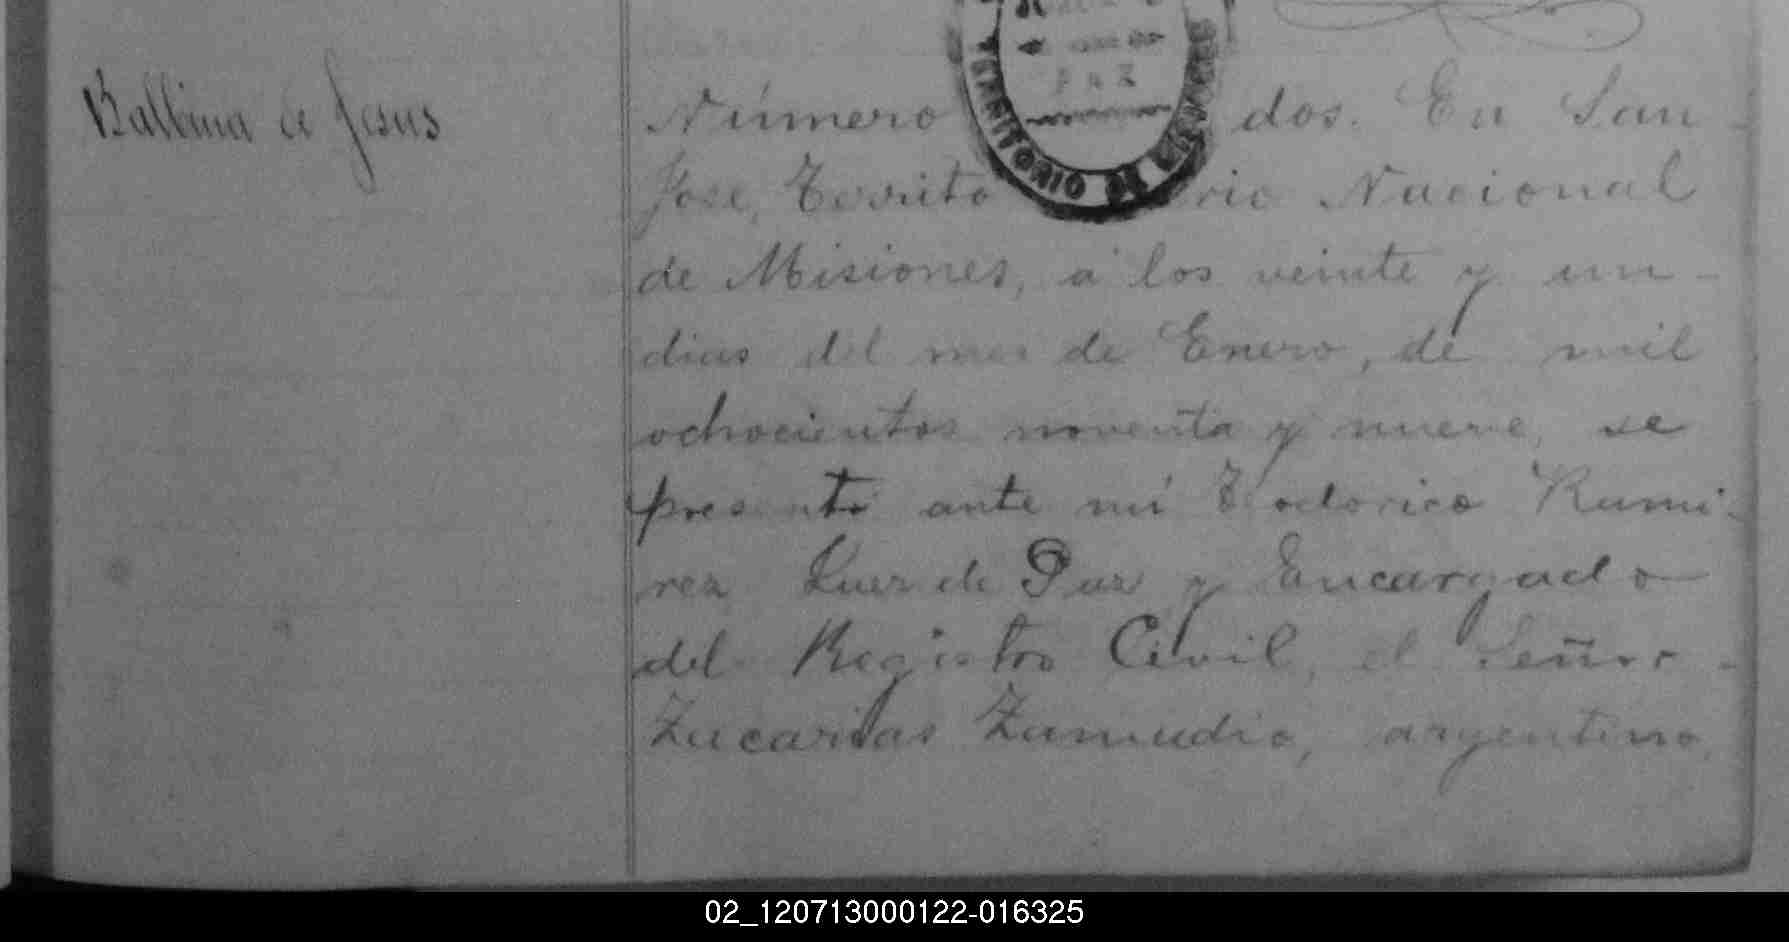 Balbina de Jesus
JUZGADO
DE
PAZ
TERRITORIO DE MISIONES
Número dos. En San
José, Territo rio Nacional
de Misiones, a los veinte y un
dias del mes de Enero, de mil
ochocientos noventa y nueve, se
presentó ante mí Teodorico Rami-
rez Juez de Paz y Encargado
del Registro Civil, el Señor
Zacarias Zamudio, argentino,
02_120713000122-016325